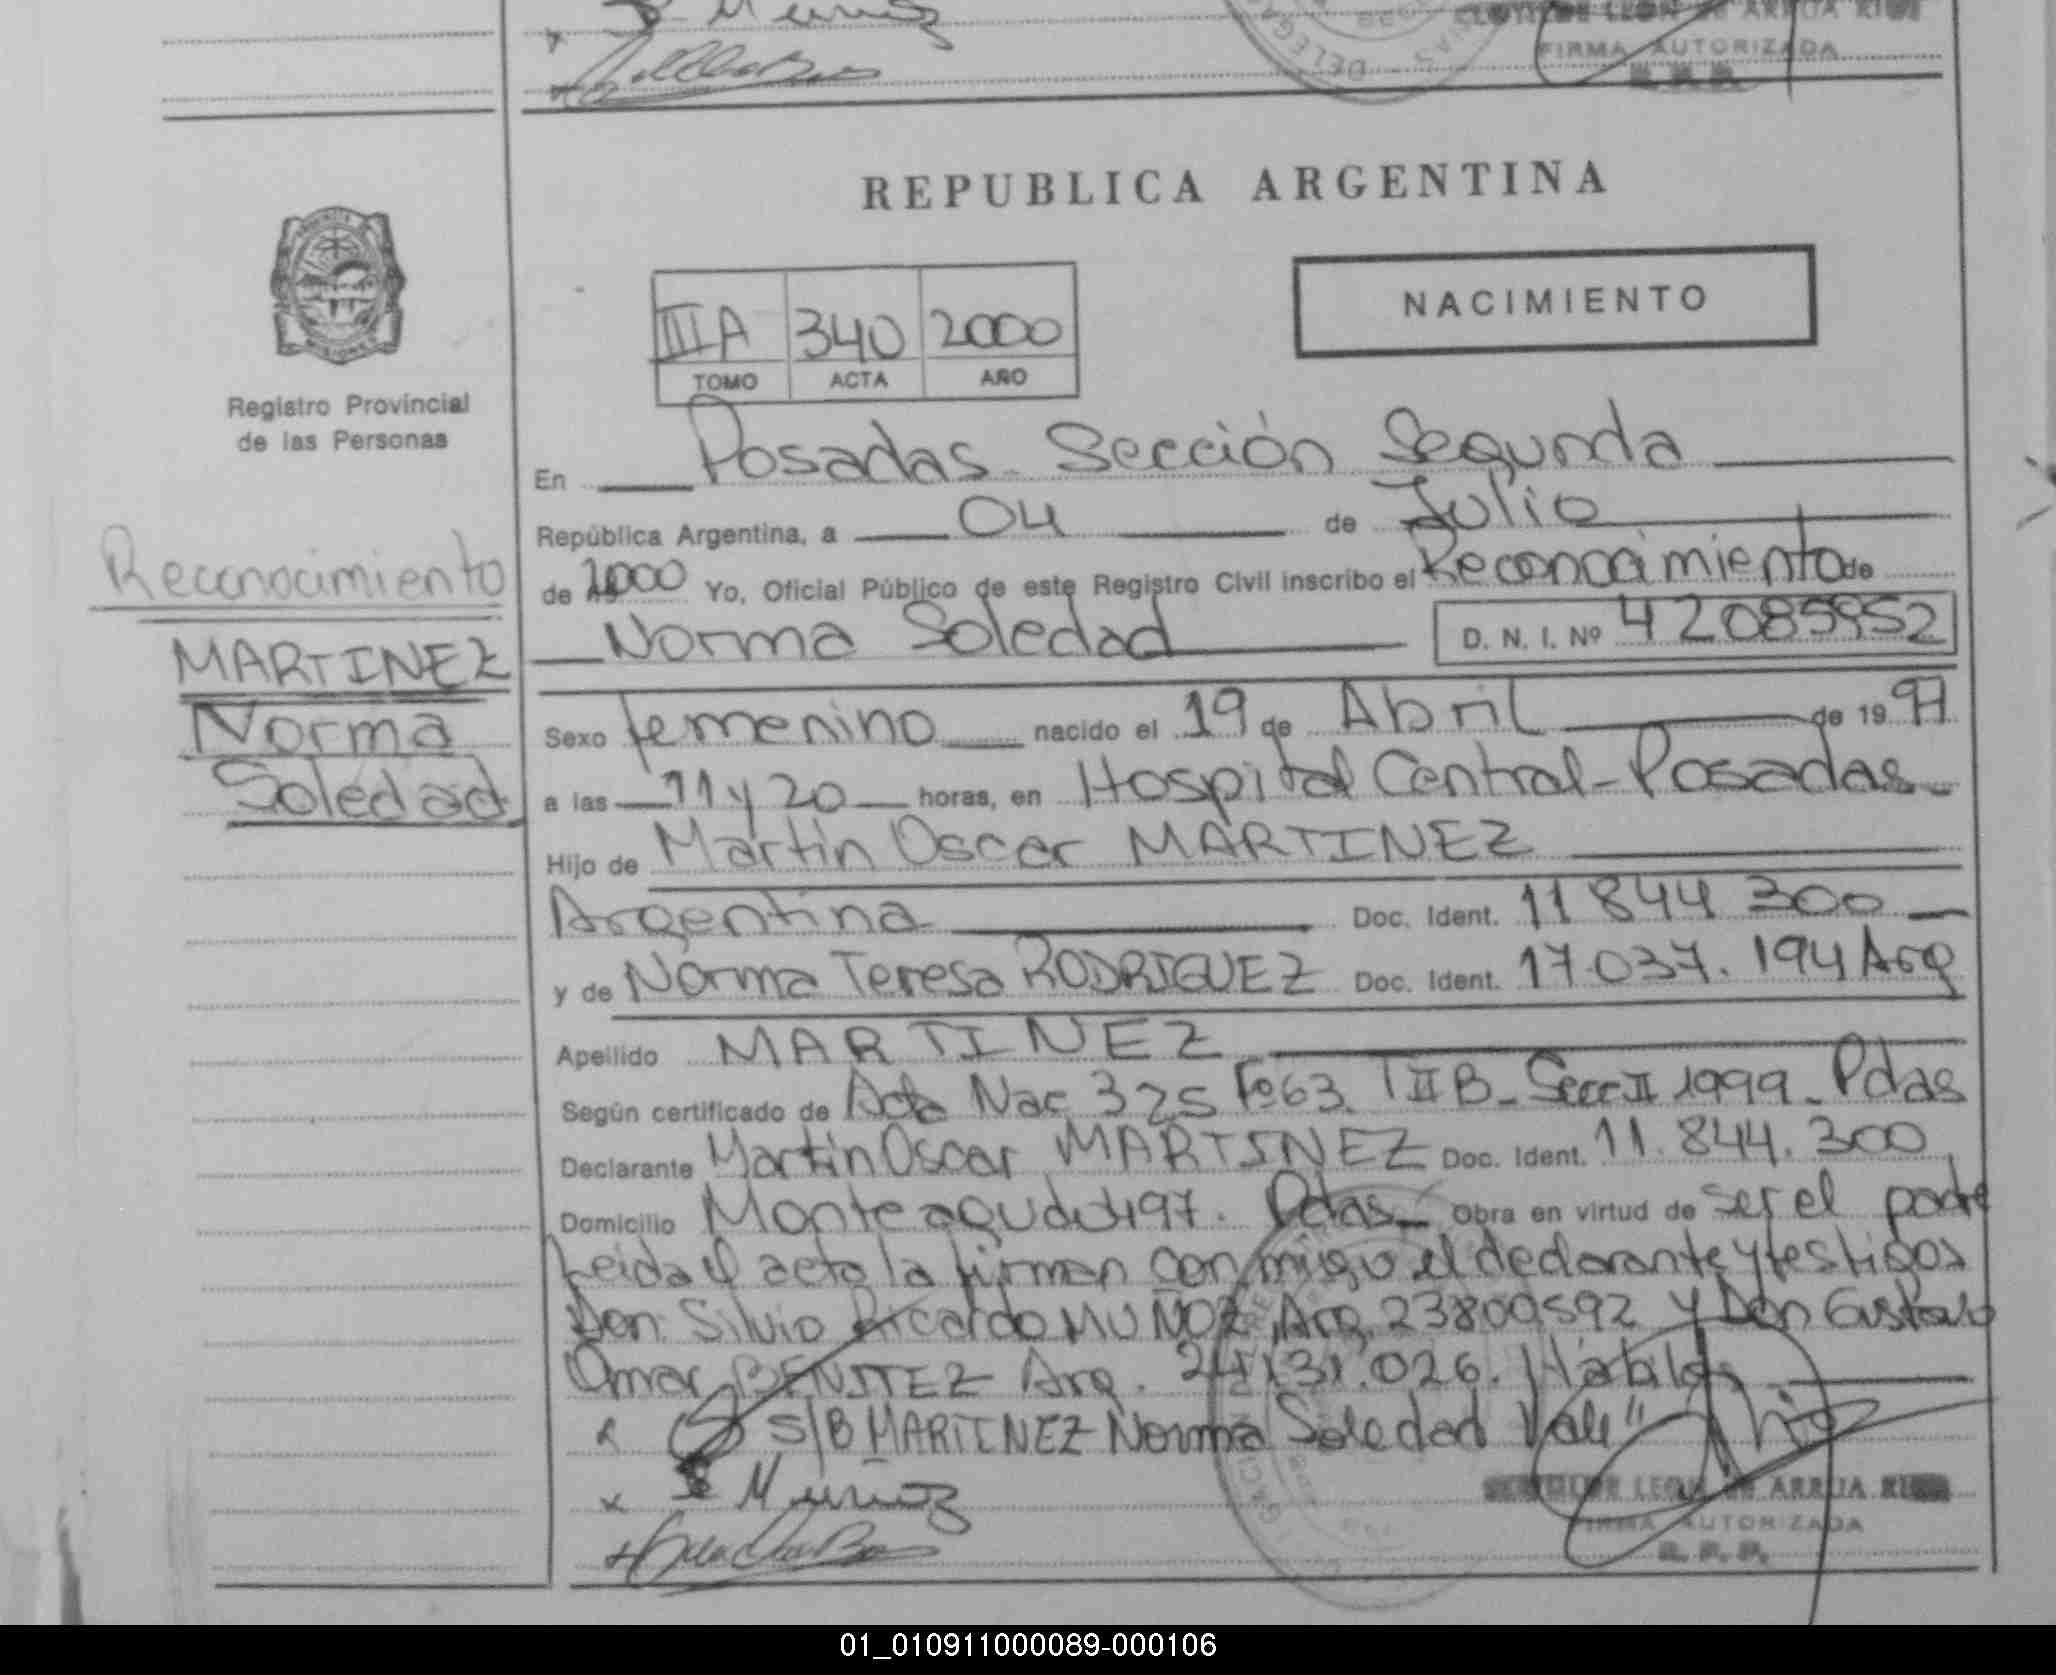 Muñoz
CLOTILDE LEON de ARRUA RIOS
FIRMA AUTORIZADA
R. P. P.
REPUBLICA ARGENTINA
NACIMIENTO
IIIA 340 2000
TOMO ACTA AÑO
MISIONES
Registro Provincial
de las Personas
En Posadas - Sección Segunda
República Argentina, a 04 de Julio
de 2000 Yo, Oficial Público de este Registro Civil inscribo el Reconocimiento de
Norma Soledad D. N. I. Nº 42085952
Reconocimiento
MARTINEZ
Norma
Soledad
Sexo femenino nacido el 19 de Abril de 19 97
a las 11 y 20 horas, en Hospital Central - Posadas
Hijo de Martin Oscar MARTINEZ
Argentina Doc. Ident. 11844300
y de Norma Teresa RODRIGUEZ Doc. Ident. 17.037.194 Arg
Apellido MARTINEZ
Según certificado de Acta Nac 325 Fº 63 T II B - Secc II 1999 - Pdas
Declarante Martin Oscar MARTINEZ Doc. Ident. 11.844.300
Domicilio Monteagudo 497. Pdas - Obra en virtud de ser el padre
Leida el acta la firman conmigo el declarante y testigos
Don Silvio Ricardo MUÑOZ, Arg. 23809592 y Don Gustavo
Omar BENITEZ Arg. 24.131.026. Habiles
S/B MARTINEZ Norma Soledad Vale"
Muñoz
LEON de ARRUA RIOS
FIRMA AUTORIZADA
R. P. P.
01_010911000089-000106